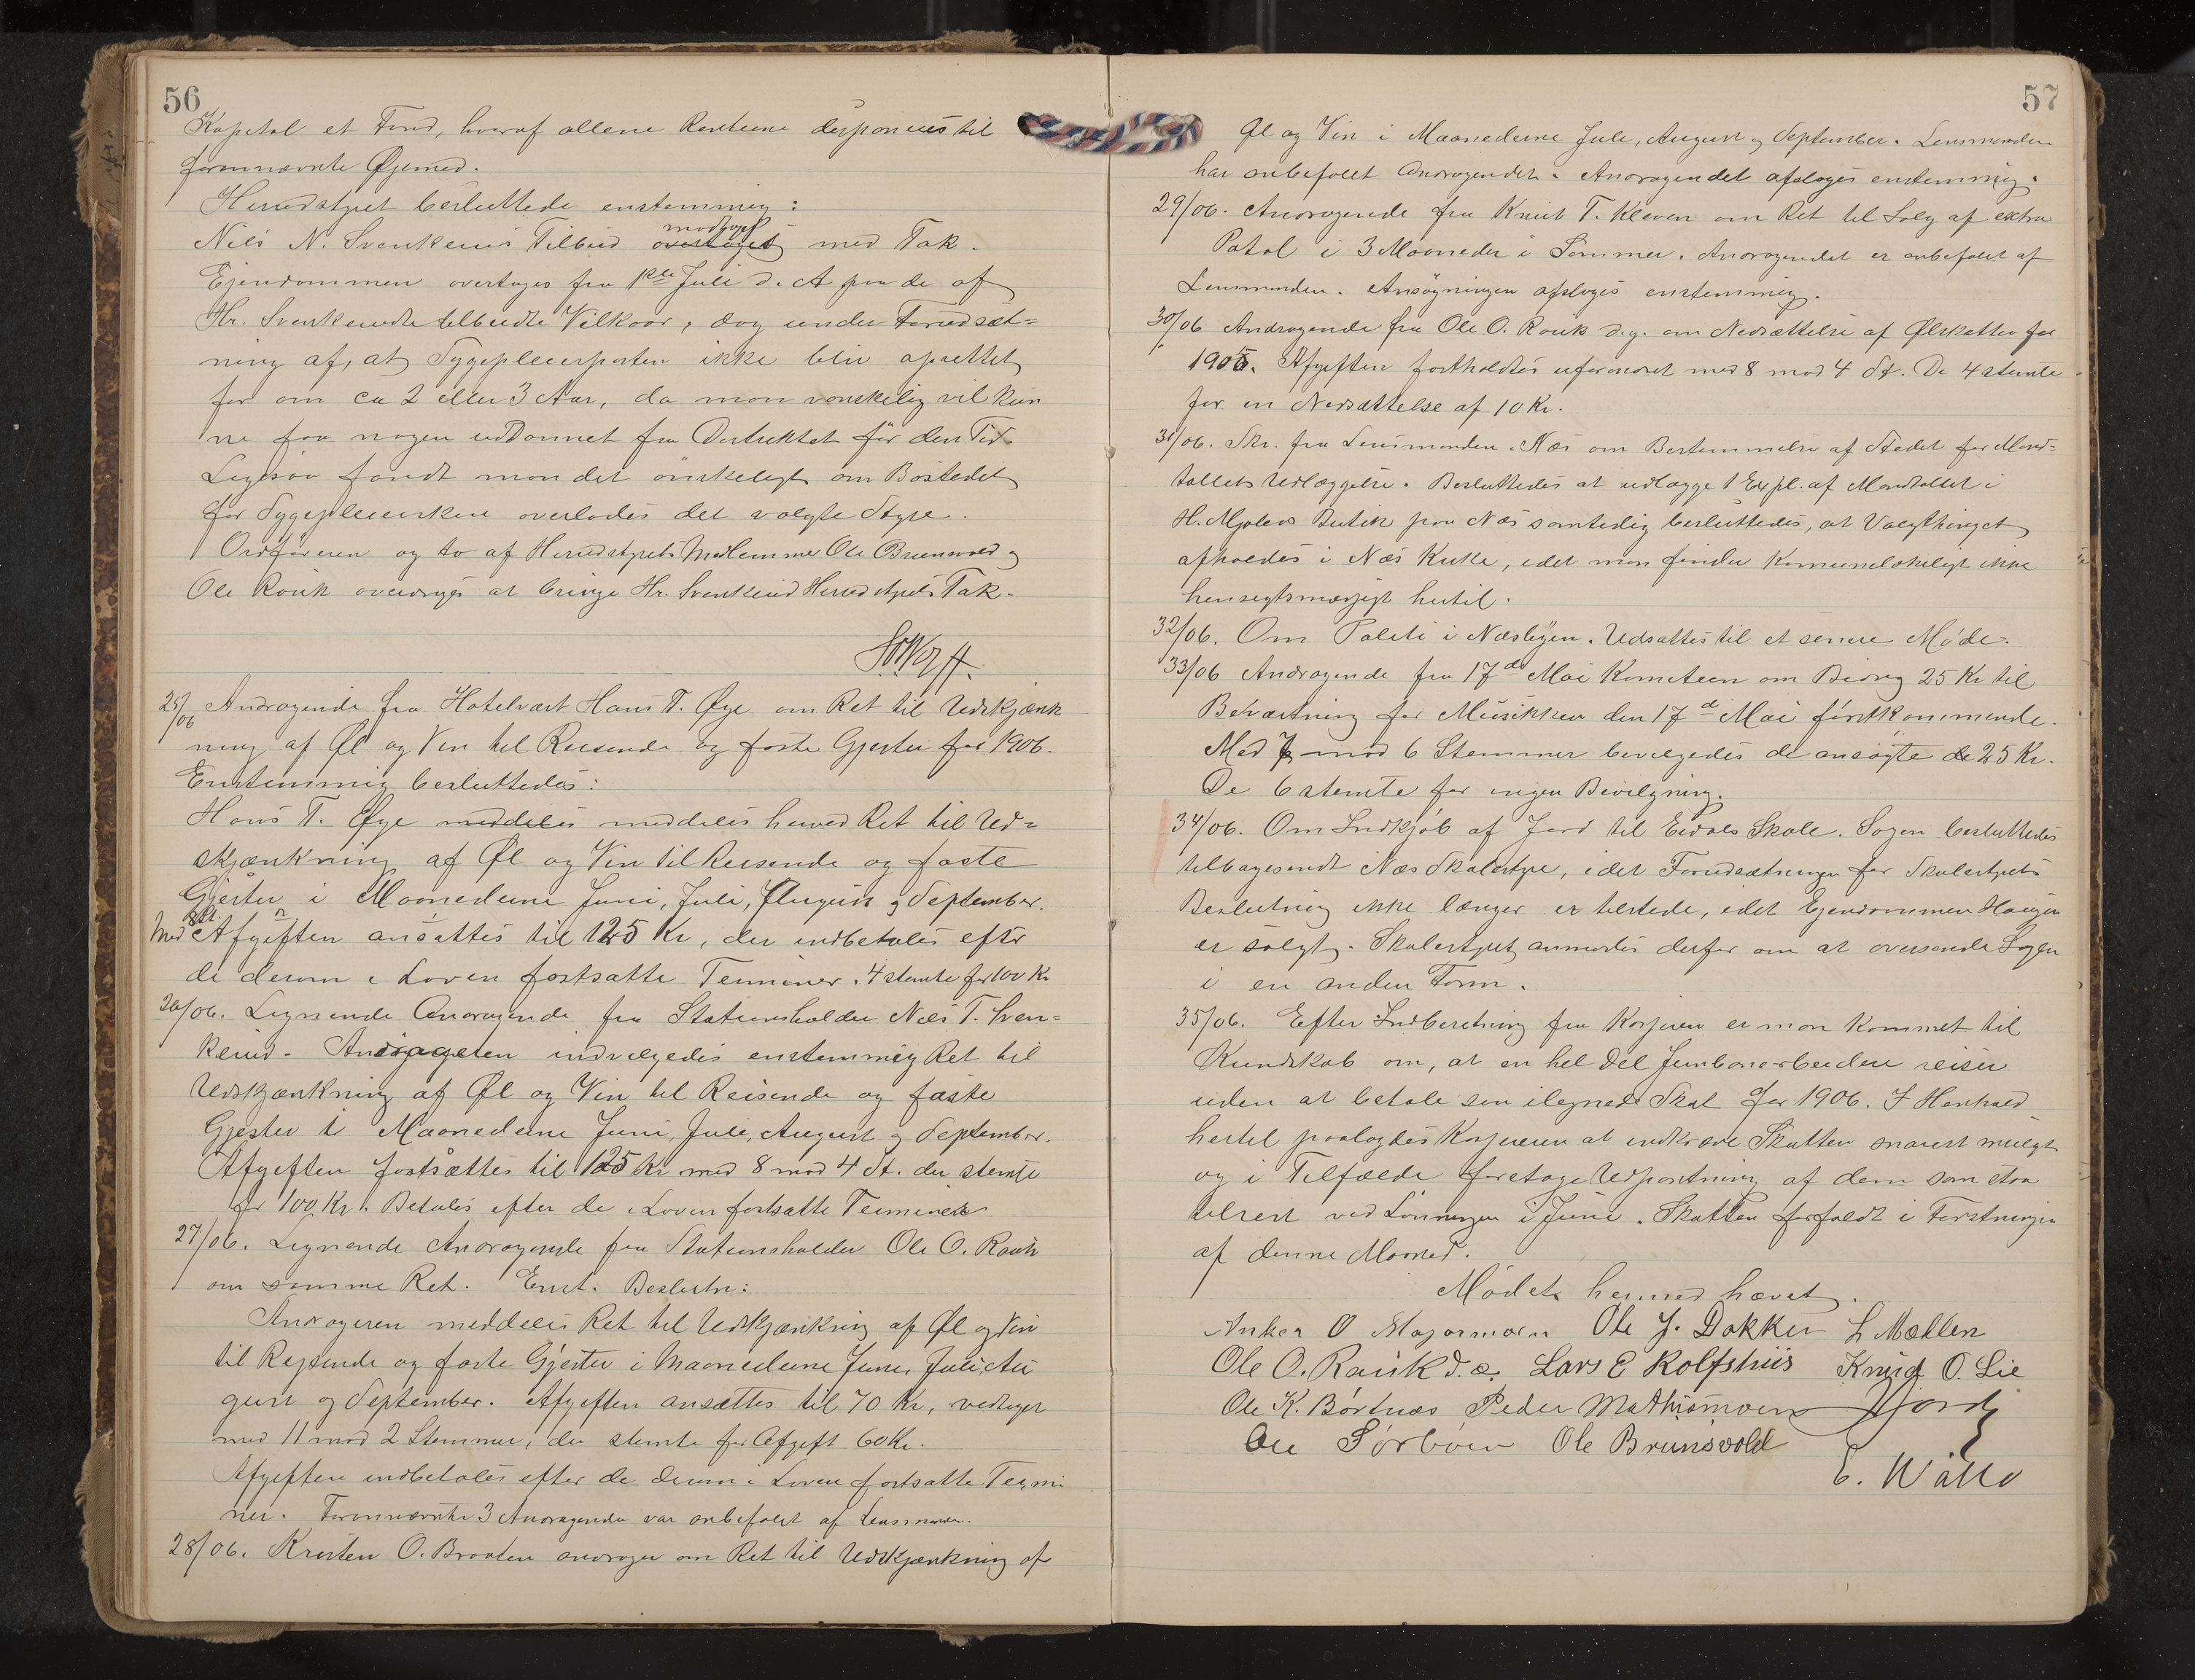 56
Kapital et Fond, hvoraf allene Renterne disponeres til
fornævnte Øjemed.
Herredstyret besluttede enstemmig:
Nils N. Svenkeruds Tilbud overtoges modtoges med Tak.
Ejendommen overtages fra 1ste Juli d. A paa de af
Hr. Svenkerud tilbudte Vilkaar, dog under Forudsæt-
ning af, at Sygepleierposten ikke blir oprettet
før om ca 2 eller 3 Aar, da man vanskelig vil kun
ne faa nogen uddannet fra Distriktet før den Tid.
Ligesaa fandt man det ønskeligt om Bostedet
for Sygepleiersken overlodes det valgte Styre.
Ordføreren og to af Herredstyrets Medlemmer Ole Brunsvold og
Ole Rauk overdroges at bringe Hr. Svenkerud Herredstyrets Tak.
25/06 Andragende fra Hotelvært Hans T. Øye om Ret til Udskjænk
ning af Øl og Vin til Reisende og faste Gjester for 1906.
Enstemmig besluttedes:
Hans T. Øye meddeles meddeles herved Ret til Ud-
skjænkning af Øl og Vin til Reisende og faste
Gjester i Maanederne Juni, Juli, August og September.
Med 8 St. Afgiften ansattes til 125 Kr, der indbetales efter
de derom i Loven fastsatte Terminer. 4 stemte for 100 Kr
26/06. Lignende Andragende fra Stationsholder Nils T. Sven-
kerud. Andrageren indvilgedes enstemmig Ret til
Udskjænkning af Øl og Vin til Reisende og faste
Gjester i Maanederne Juni, Juli, August og September.
Afgiften fastsættes til 125 Kr med 8 mod 4 St. der stemte
for 100 Kr. Betales efter de i Loven fastsatte Terminer
27/06. Lignende Andragende fra Stationsholder Ole O. Rauk
om samme Ret. Enst. Beslutn:
Andrageren meddeles Ret til Udskjænkning af Øl og Vin
til Rejsende og faste Gjester i Maanederne Juni, Juli, Au
gust og September. Afgiften ansættes til 70 Kr, vedtaget
med 11 mod 2 Stemmer, der stemte for Afgift 60 Kr.
Afgiften indbetales efter de derom i Loven fastsatte Termi
ner. Fornævnte 3 Andragender var anbefalet af Lensmanden.
28/06. Kristen O. Braaten andrager om Ret til Udskjænkning af
57
Øl og Vin i Maanederne Juli, August og September. Lensmanden
har anbefalet Andragendet. Andragendet afsloges enstemmig.
29/06. Andragende fra Knut T. Kleven om Ret til Salg af extra
Patøl i 3 Maaneder i Sommer. Andragendet er anbefalet af
Lensmanden. Ansøgningen afsloges enstemmig.
30/06 Andragende fra Ole O. Rauk d.y. om Nedsættelse af Ølskatten for
1905. Afgiften fastholdtes uforandret med 8 mod 4 St. De 4 stemte
for en Nedsættelse af 10 Kr.
31/06. Skr. fra Lensmanden i Næs om Bestemmelse af Stedet for Mand-
tallets Udlæggelse. Besluttedes at udlægge 1 Expl. af Mandtallet i
H. Mjølens Butik paa Næs samtidig besluttedes, at Valgthinget
afholdes i Næs Kirke, idet man finder Komunelokalet ikke
hensigtsmæssigt hertil.
32/06. Om Politi i Næsbyen. Udsattes til et senere Møde.
33/06 Andragende fra 17de Mai Komiteen om Bidrag 25 Kr til
Beværtning for Musikken den 17de Mai førstkommende.
Med 7 mod 6 Stemmer bevilgedes de ansøgte de 25 Kr.
De 6 stemte for ingen Bevilgning.
34/06. Om Indkjøb af Jord til Eidals Skole. Sagen besluttedes
tilbagesendt Næs Skolestyre, idet Forudsætningen for Skolestyrets
Beslutning ikke længer er tilstede, idet Ejendommen Haugen
er solgt. Skolestyret anmodes derfor om at oversende Sagen
i en anden Form.
35/06. Efter Indberetning fra Kassereren er man kommet til
Kundskab om, at en hel Del Jernbanearbeidere reiser
uden at betale sin ilignede Skat for 1906. I Henhold
hertil paalagdes Kassereren at indkræve Skatten snarest muligt
og i Tilfælde foretage Udpantning af dem som staa
tilrest ved Lønningen i Juni. Skatten forfaldt i Førstningen
af denne Maaned.
Mødet hermed hævet.
Anker O Ole J. Dokken L Mæhlen
Ole O. Rauk d.æ. Lars E Rolfshus Knud O. Lie
Ole K. Børtnæs Peder Mathismoen Hjorth
Ole Sørbøen Ole Brunsvold
E. Wøllo